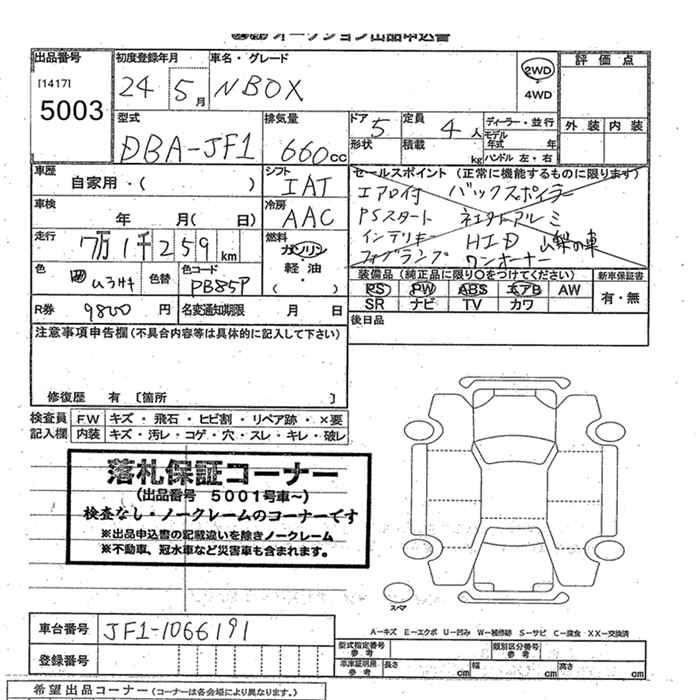 オークション出品申込書
出品番号 初度登録年月 車名・グレード 評価点
[1417] 24 5月 NBOX 2WD
5003 4WD
型式 排気量 ドア 5 定員 4人 ディーラー・並行 外装 内装
DBA-JF1 660cc 形状 積載 kg モデル年式 年
ハンドル 左・右
車歴 シフト セールスポイント (正常に機能するものに限ります)
自家用・( ) IAT エアロ付 バックスポイラー
車検 冷房 PSスタート
年 月( 日) AAC インテリキー HID
走行 燃料 フォグランプ ワンオーナー
7万1千259km ガソリン
軽油
( )
色 色替 色コード 装備品 (純正品に限り○をつけてください) 新車保証書
PB85P PS PW ABS エアB AW 有・無
SR ナビ TV カワ
R券 9800円 名変通知期限 月 日 後日品
注意事項申告欄 (不具合内容等は具体的に記入して下さい)
修復歴 有 [箇所 ]
検査員 FW キズ・飛石・ヒビ割・リペア跡・×要
記入欄 内装 キズ・汚レ・コゲ・穴・スレ・キレ・破レ
落札保証コーナー
(出品番号 5001号車~)
検査なし・ノークレームのコーナーです
※出品申込書の記載違いを除きノークレーム
※不動車、冠水車など災害車も含まれます。
スペア
車台番号 JF1-1066191
A－キズ E－エクボ U－凹み W－補修跡 S－サビ C－腐食 XX－交換済
登録番号 型式指定番号 参考 類別区分番号 参考
車庫証明用 参考 長さ cm 幅 cm 高さ cm
希望出品コーナー (コーナーは各会場により異なります。)